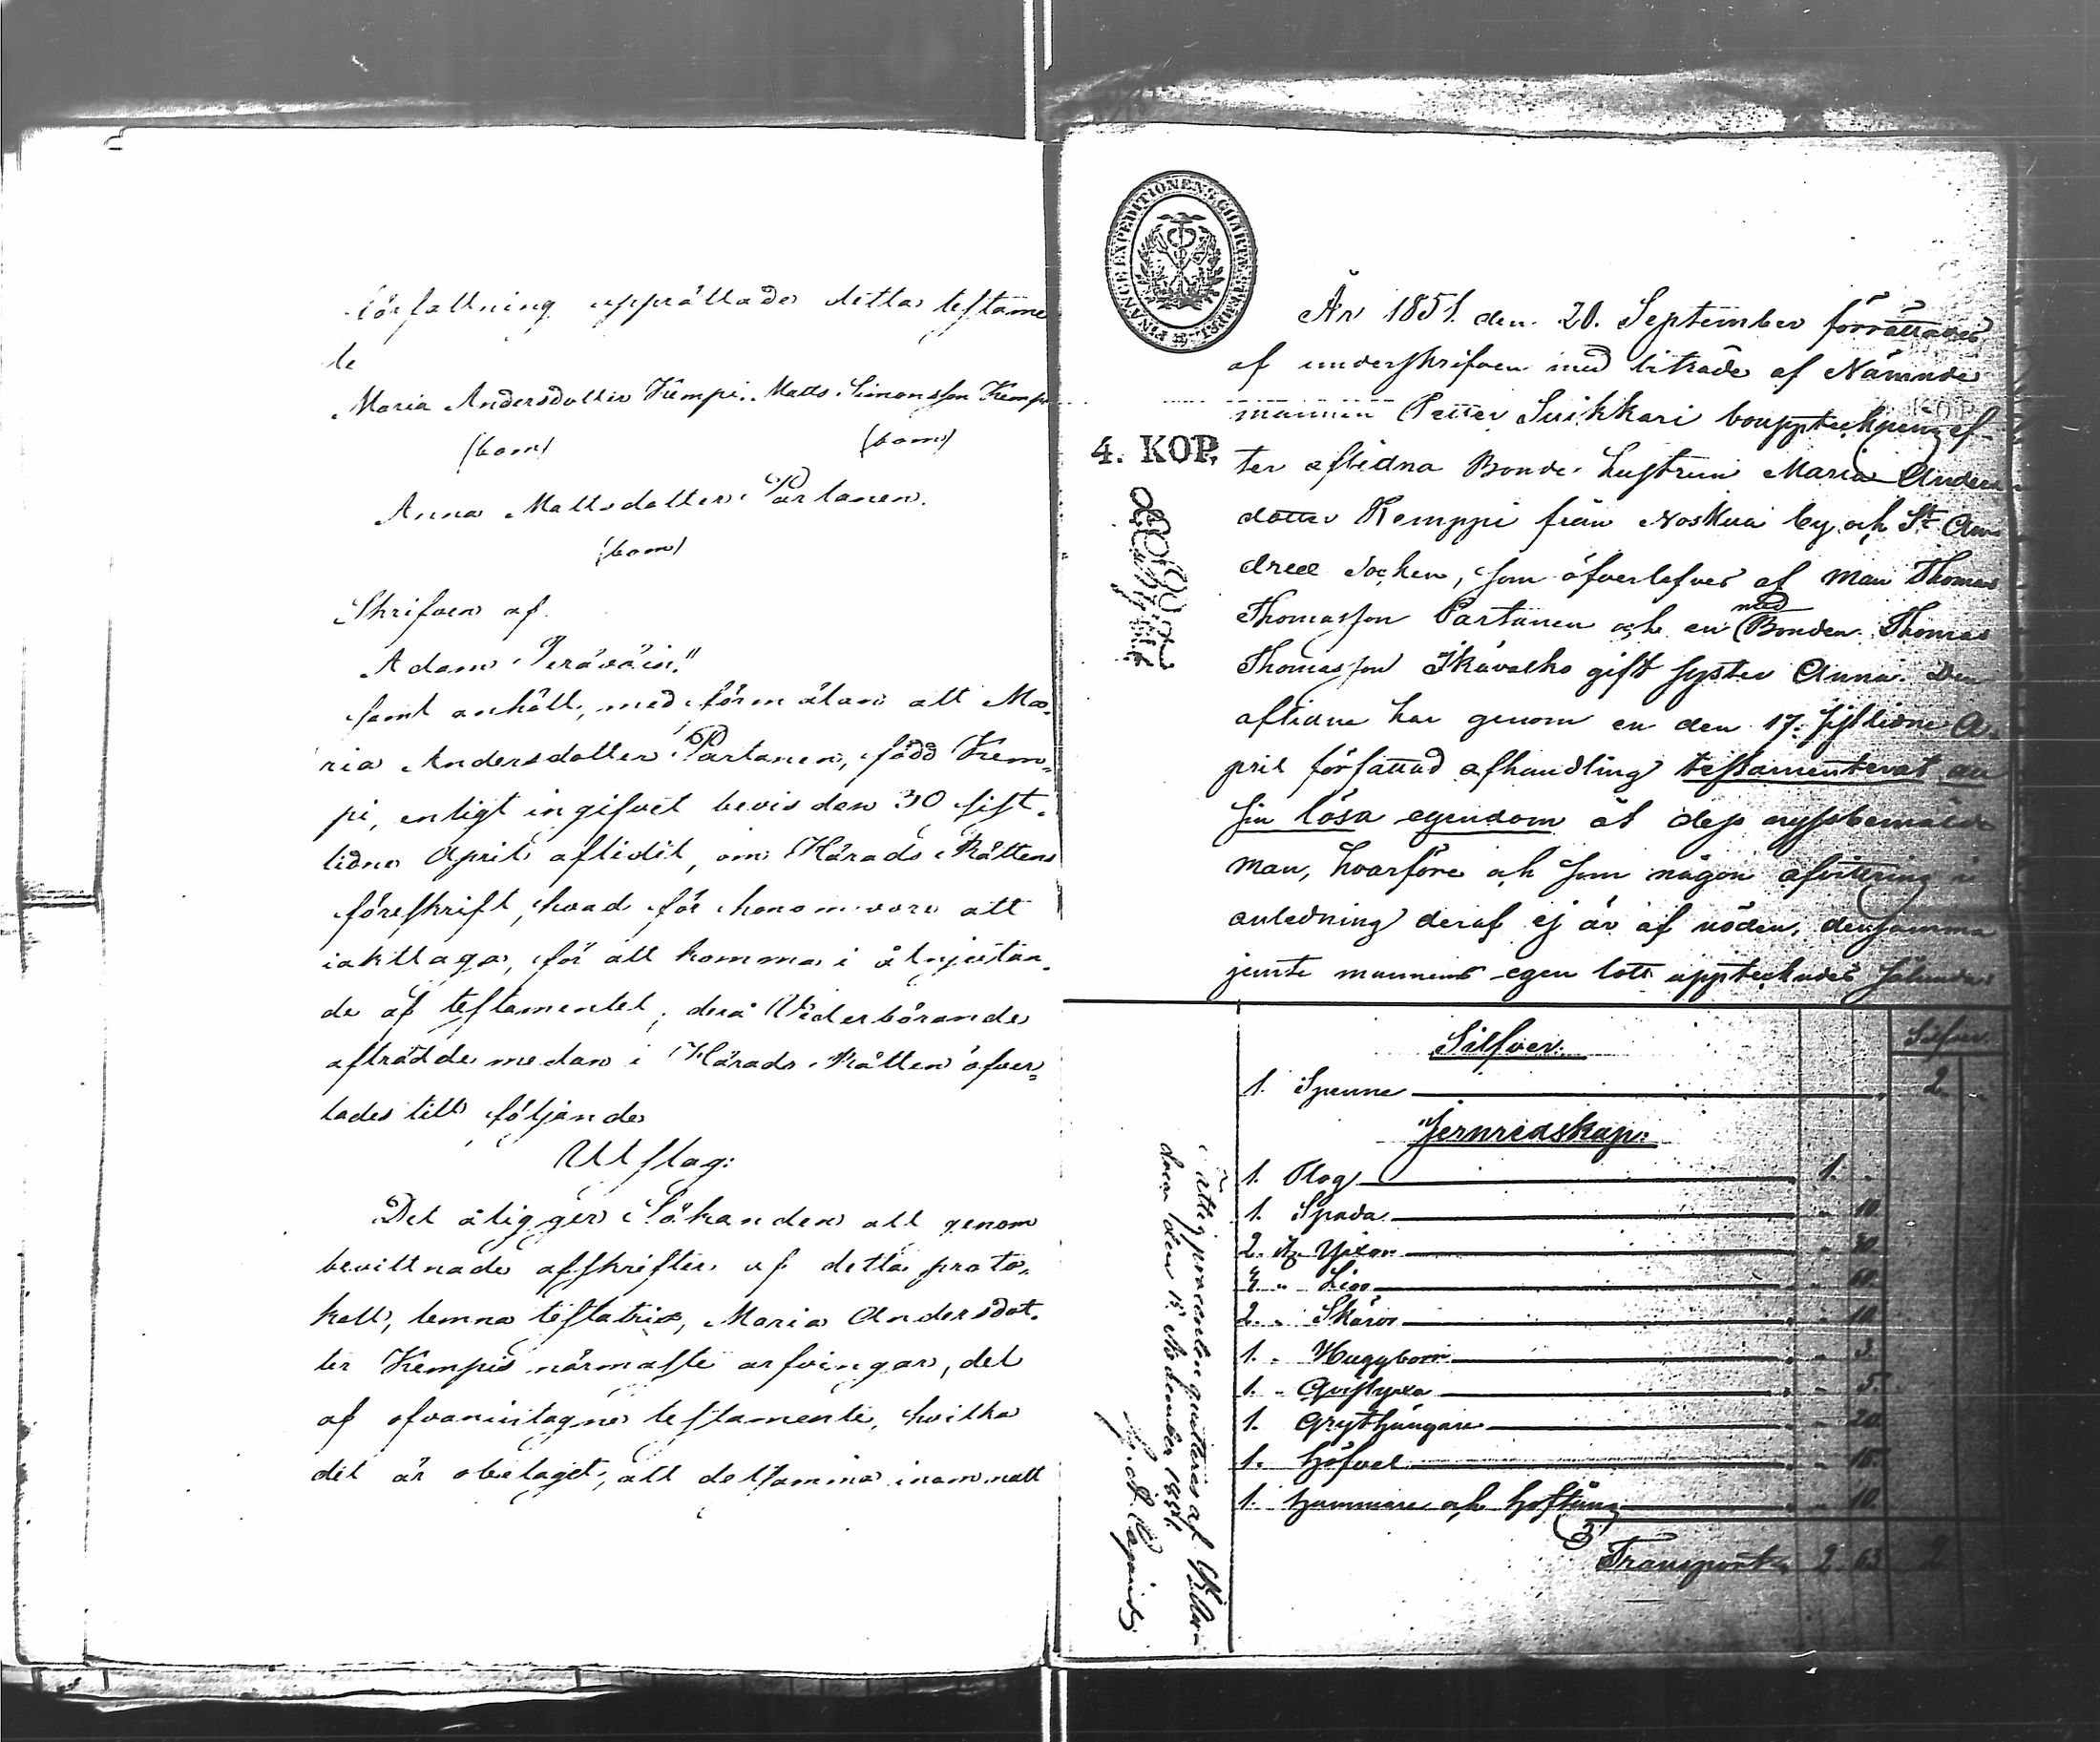 författning upprättade detta testame
te
Maria Andersdotter Kempi. Matts Simonsson Kemp
(bom) (bom)
Anna Mattsdotter Partanen.
(bom)
Skrifven af
Adam Peräväin."
samt anhöll, med förmälan att Ma-
ria Andersdotter Partanen, född Kem-
pi, enligt ingifvet bevis den 30 sist-
lidne April aflidit, om Härads Rättens
föreskrift, hvad för honom vore att
iakttaga, för att komma i åtnjutan-
de af testamentet; derå Vederbörande
afträdde medan i Härads Rätten öfver-
lades till följande
Utslag:
Det åligger Sökanden att genom
bevittnade afskrifter af detta proto-
koll, lemna testatrix, Maria Andersdot-
ter Kempis närmaste arfvingar, del
af ofvanintagne testamente, hvilka
det är obetaget, att detsamma inom natt
FINANCE EXPEDITIONENS CHARTÆ STEMPEL
4. KOP.
År 1851. den 20. September förrättades
af underskrifven med biträde af Nämnde
mannen Petter Suikkari bouppteckning ef-
ter aflidna Bonde hustrun Maria Anders
dotter Kemppi från Noskua by och St. An
dreæ Socken, som öfverlefves af man Thomas
Thomasson Partanen och en med Bonden Thomas
Thomasson Ikävalko gift syster Anna. Den
aflidne har genom en den 17. sistlidne A-
pril författad afhandling testamenterat all
sin lösa egendom åt dess nyssbemälde
man, hvarföre och som någon afvittring i
anledning deraf ej är af nöden, densamma
jemte mannens egen lott upptecknades sålunda:
Silfver. Silfver
1. Spenne 2.
Jernredskap:
1. Plog 1.
1. Spada 10.
2. st. Yxor 40.
3. " Liar 60.
2. " Skäror 10.
1. " Huggborr 3.
1. " Ljusstyxa 5.
1. Grythängare 20.
1. Höfvel 15.
1. Hammare och Hoftång 10.
Transport 2. 63. 2